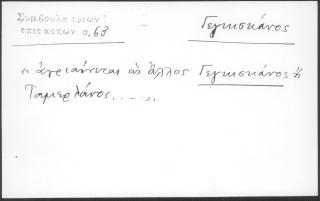 Συμβουλη τριων
επισκοπων σ.63
Γεγκισκάνος
« ἀγριαίνεται ὡς ἄλλος Γεγκισκάνος ἤ
Ταμερλάνος.....»